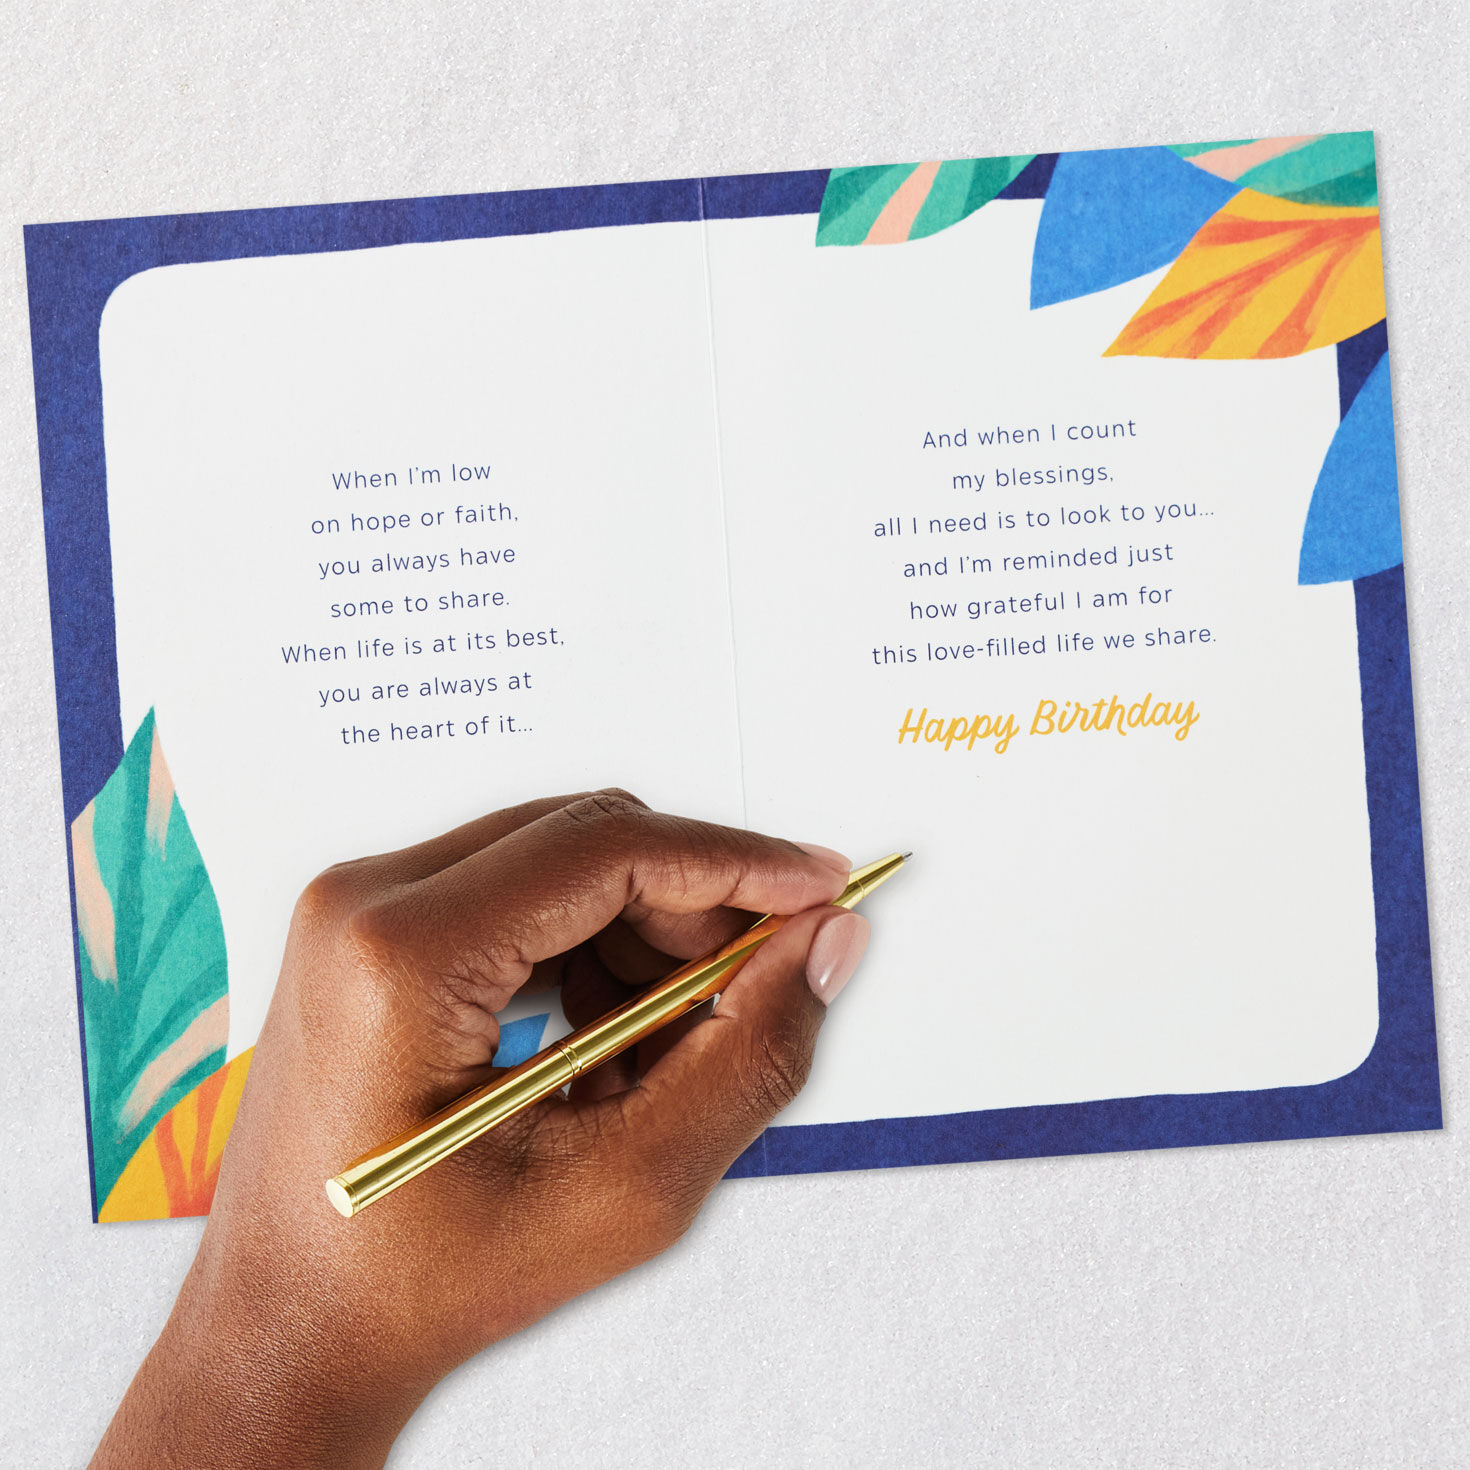 When I'm low
on hope or faith,
you always have
some to share.
When life is at its best,
you are always at
the heart of it...
And when I count
my blessings,
all I need is to look to you...
and I'm reminded just
how grateful I am for
this love-filled life we share.
Happy Birthday